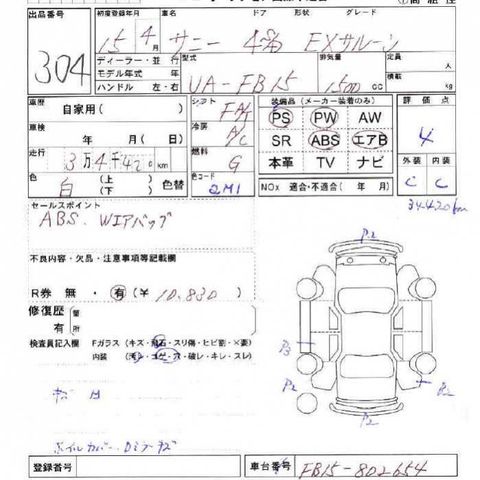 出品番号 初度登録年月 車名 ドア 形状 グレード
304 15年 4月 サニー 4 EXサルーン
ディーラー・並行 型式 排気量 定員 人
モデル年式 年 積載
ハンドル 左・右 UA-FB15 1500 cc kg
車歴 自家用( ) シフト FA/T 装備品(メーカー装着のみ) 評価点
車検 年 月( 日) 冷房 A/C PS PW AW 4
SR ABS エアB 外装 内装
走行 3万4千420km 燃料 G 本革 TV ナビ C C
色 白 (上) (下) 色替 色コード QM1 NOx 適合・不適合( 年 月)
34420km
セールスポイント
ABS. Wエアバッグ
不良内容・欠品・注意事項等記載欄
R券 無・有(¥ 10,830 )
修復歴 無 有 箇所
検査員記入欄 Fガラス(キズ・飛石・スリ傷・ヒビ割・×要)
内装 (汚・コゲ・穴・破レ・キレ・スレ)
P2
P3
P2
P2
P2
登録番号 車台番号 FB15-802654